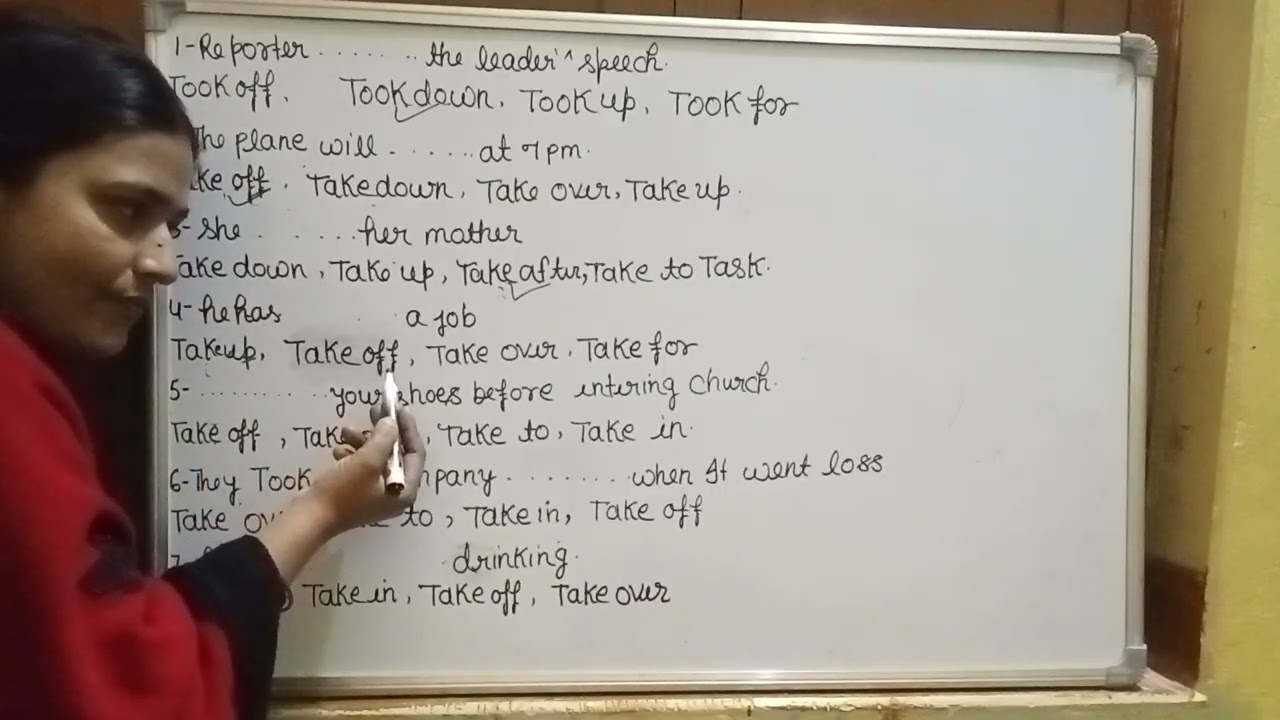 1-Reporter ........ the leader's speech.
Took off, Took down, Took up, Took for
The plane will ...... at 7 pm.
Take off, Take down, Take over, Take up.
3-She ....... her mather
Take down, Take up, Take after, Take to Task.
4-he has a job
Take up, Take off, Take over, Take for
5- .......... your shoes before entering Church.
Take off, Take to, Take in.
6-They Took ........ when It went loss
Take to, Take in, Take off
drinking.
Take in, Take off, Take over